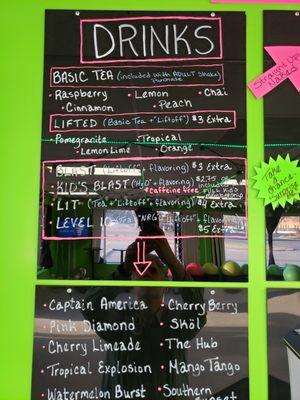 DRINKS
BASIC TEA (included with ADULT Shake/purchase)
• Raspberry • Lemon • Chai
• Cinnamon • Peach
LIFTED (Basic Tea + "Liftoff") $3 Extra
Pomegranite • Tropical
• Lemon Lime • Orange
BLAST (Liftoff + flavoring) $3 Extra
KID'S BLAST (H2O + flavoring) $2.75 or
*caffeine free included
LIT (Tea + "Liftoff" + flavoring) $4 Extra
LEVEL 10 (Tea "NRG" "Liftoff" + flavoring)
$5 Extra
• Captain America • Cherry Berry
• Pink Diamond • Sköl
• Cherry Limeade • The Hub
• Tropical Explosion • Mango Tango
• Watermelon Burst • Southern
Straight Up
Take a
chance
Surprise
Me